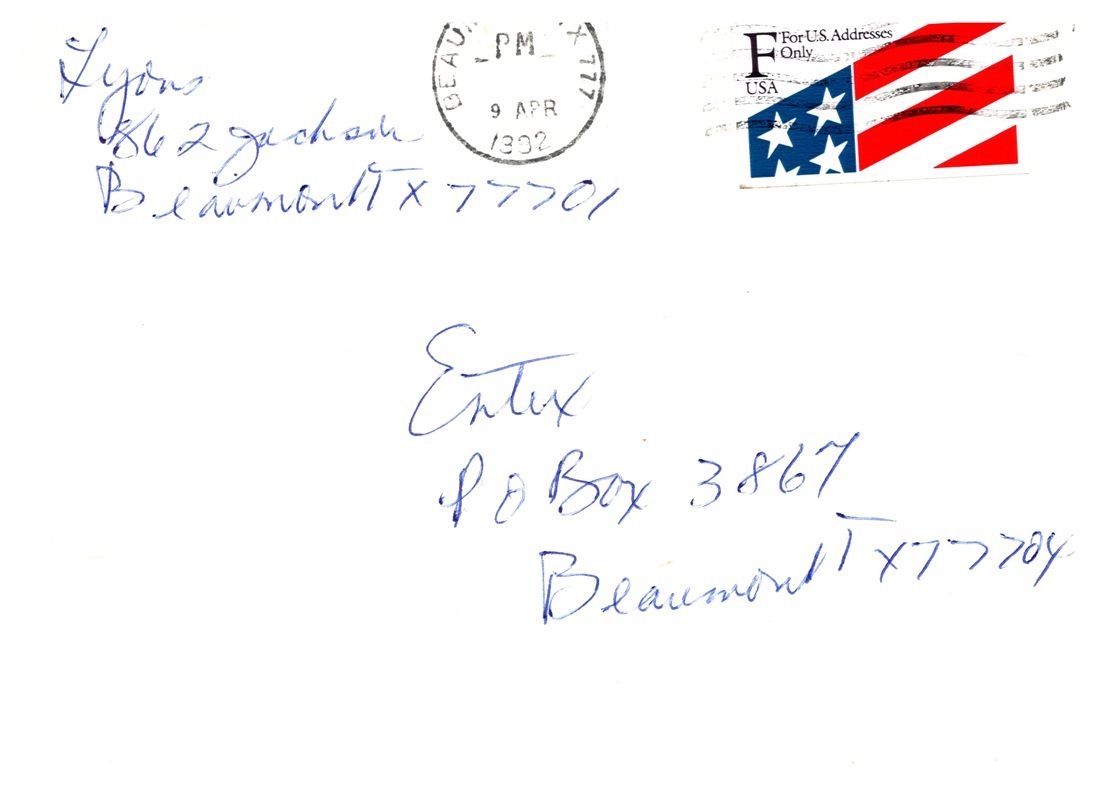 Lyons
862 Jackson
Beaumont TX 77701
BEAU X 777
PM
9 APR
1992
F For U.S. Addresses
Only
USA
Entex
P O Box 3867
Beaumont TX 77704